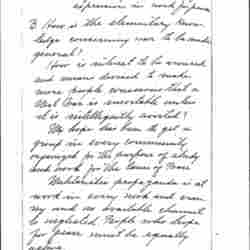 expression is
3 How is the elementary know-
ledge concerning war to be made
general?
How is interest to be aroused
and means devised to make
more people conscious that a
War is inevitable unless
it is intelligently avoided?
My hope has been to get a
group in every community
organized for the purpose of study
and work for the Cause of Peace
Militaristic propaganda is at
work in every nook and cran-
ny and no available channel
is neglected. People who hope
for peace must be equally
active.